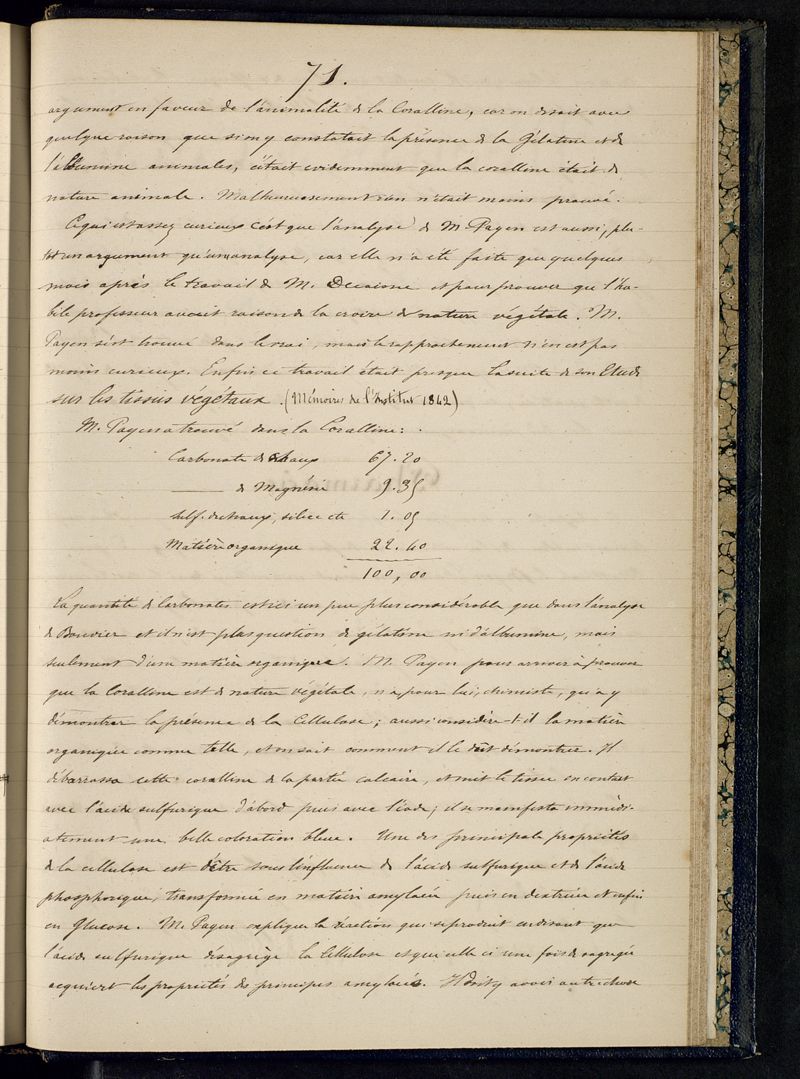 71.
argument en faveur de l'animalité de la Coralline, car on disait avec
quelque raison que si on y constatait la présence de la Gélatine et de
l'albumine animales, c'était evidemment que la coralline était de
nature animale. Malheureusement rien n'était moins prouvé.
Ce qui est assez curieux c'est que l'analyse de M. Payen est aussi, plu-
tot un argument qu'une analyse, car elle n'a été faite que quelques
mois après le travail de M. Decaisne et pour prouver que l'ha-
bile professeur avait raison de la croire de nature végétale. M.
Payen s'est trouvé dans le vrai, mais le rapprochement n'en est pas
moins curieux. Enfin ce travail était presque la suite de son Etude
sur les tissus végétaux. (Mémoires de l'Institut 1842)
M. Payen a trouvé dans la Coralline:
Carbonate de chaux 67.20
——— de Magnésie 9.35
sulf. de chaux, silice etc 1.05
Matière organique 22.40
100,00
La quantité de Carbonates est ici un peu plus considérable que dans l'analyse
de Bouvier et il n'est plus question de gélatine ni d'albumine, mais
seulement d'une matière organique. M. Payen pour arriver à prouver
que la Coralline est de nature végétale, n'a pour lui, chimiste, qu'à y
démontrer la présence de la Cellulose; aussi considère-t-il la matière
organique comme telle, et on sait comment il le doit démontrer. Il
débarrassa cette coralline de la partie calcaire, et mit le tissu en contact
avec l'acide sulfurique d'abord puis avec l'iode; il se manifesta immédi-
atement une belle coloration bleue. Une des principale propriétés
de la cellulose est d'être sous l'influence de l'acide sulfurique et de l'acide
phosphorique, transformée en matière amylacée puis en dextrine et enfin
en Glucose. M. Payen explique la réaction qui se produit en disant que
l'acide sulfurique désagrège la Cellulose et que celle ci une fois desagregée
acquiert les propriétés des principes amylacés.